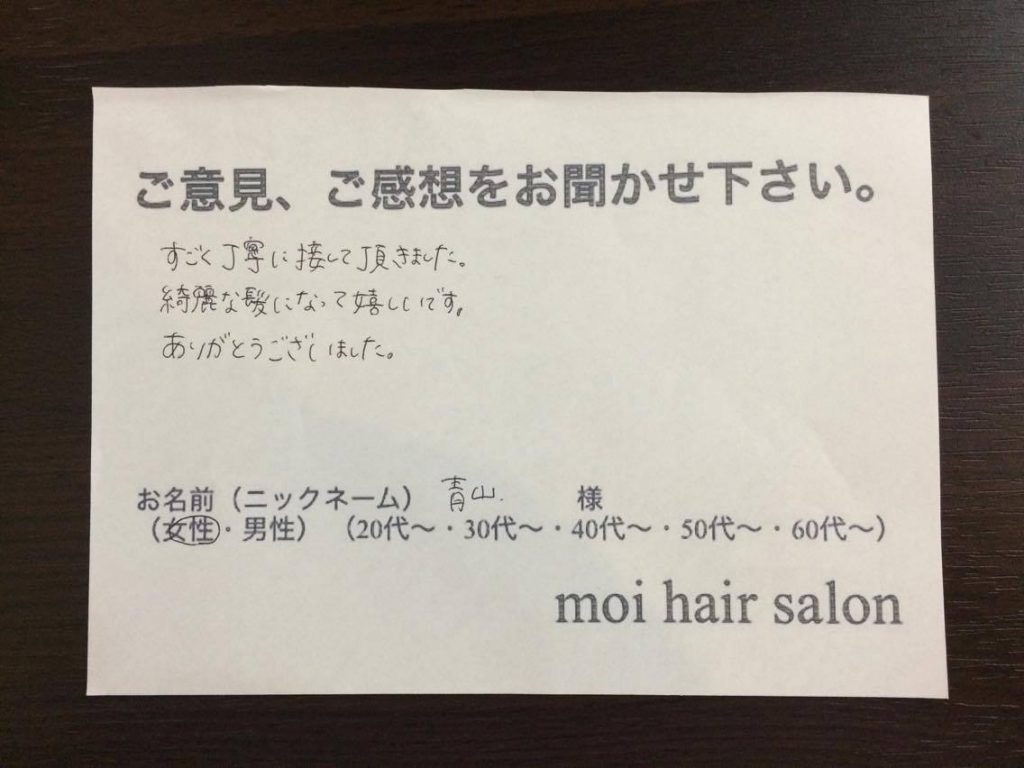 ご意見、ご感想をお聞かせ下さい。
すごく丁寧に接して頂きました。
綺麗な髪になって嬉しいです。
ありがとうございました。
お名前（ニックネーム） 青山. 様
（女性・男性）（20代〜・30代〜・40代〜・50代〜・60代〜）
moi hair salon